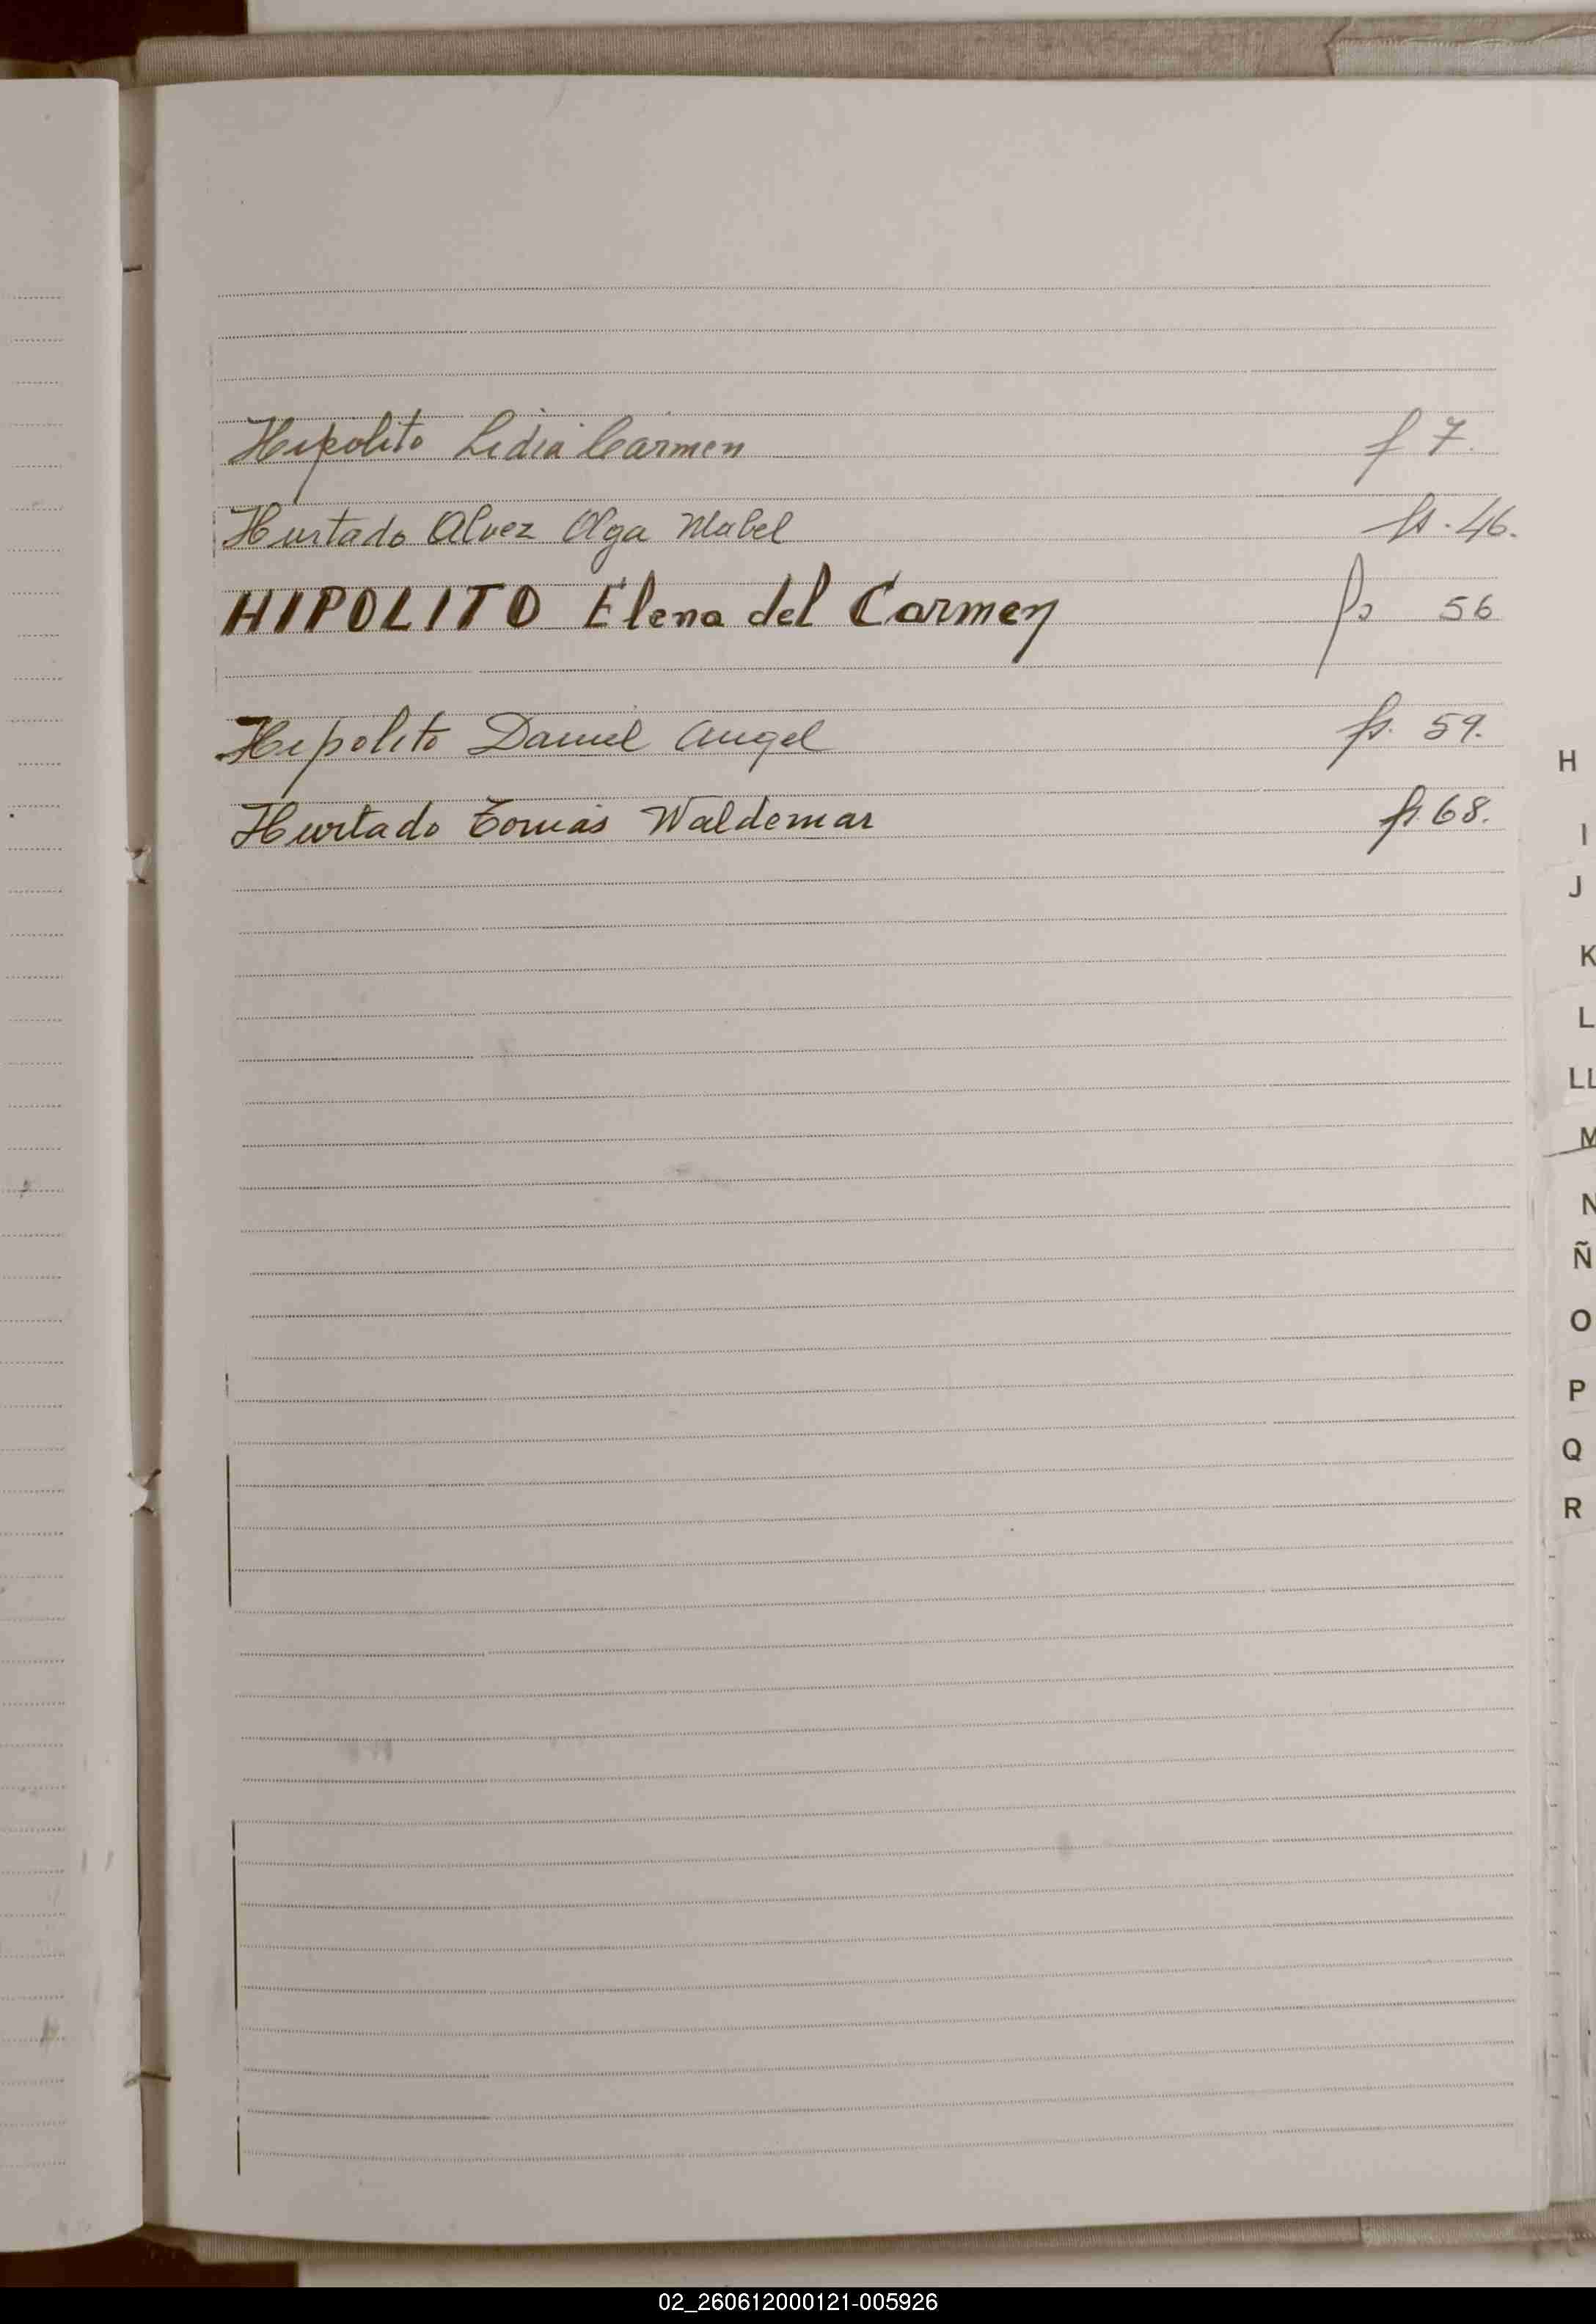 Hipolito Lidia Carmen f 7.
Hurtado Alvez Olga Mabel fs. 46.
HIPOLITO Elena del Carmen fs 56
Hipolito Daniel Angel fs. 59.
Hurtado Tomás Waldemar fs. 68.
H
I
J
K
L
LL
M
N
Ñ
O
P
Q
R
02_260612000121-005926